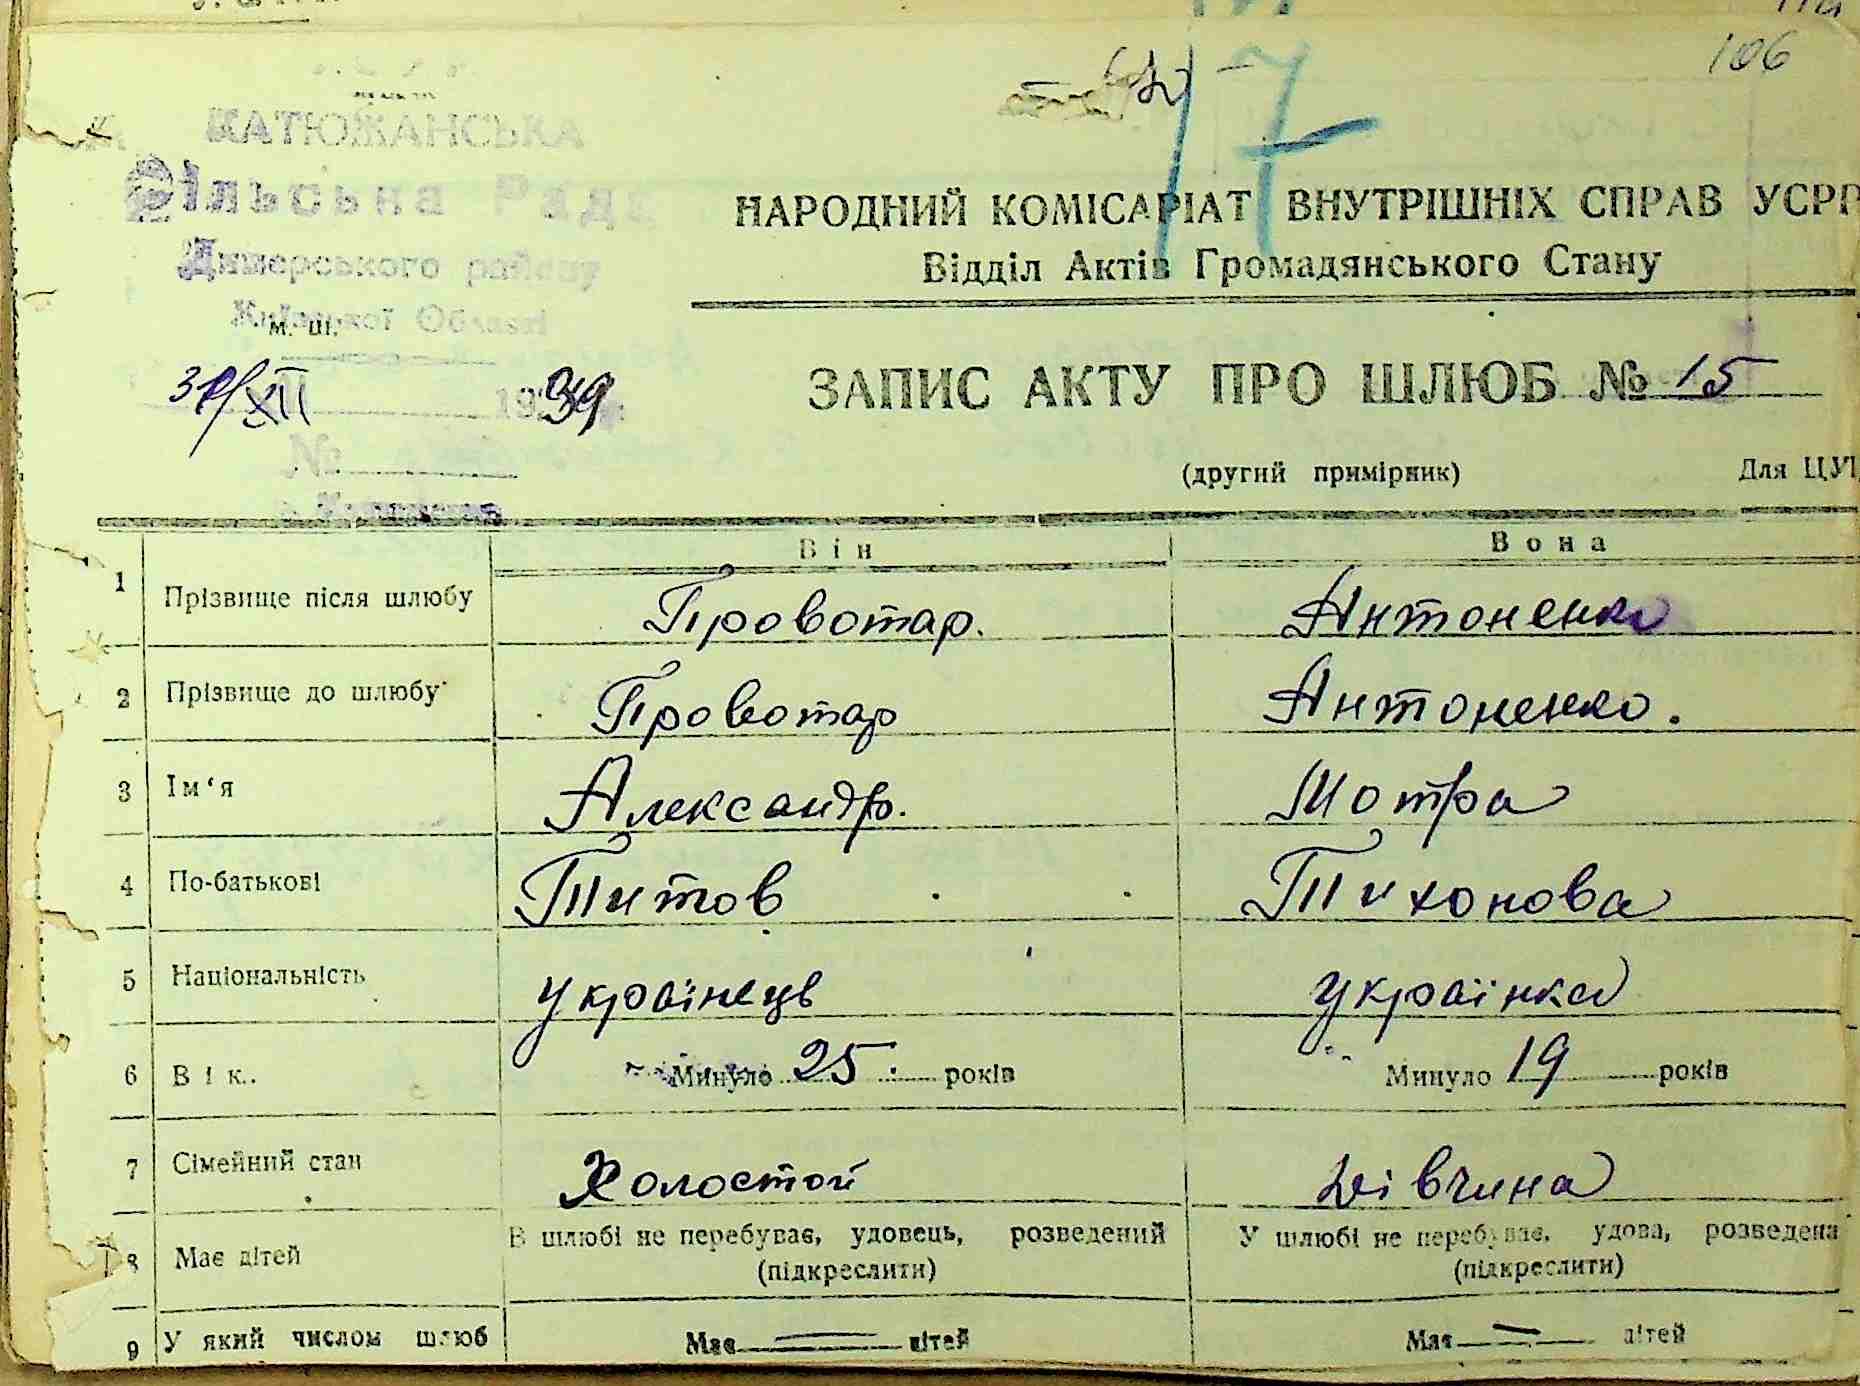 106
17
КАТЮЖАНСЬКА
Сільська Рада
Димерського району
Київської Області
м. ш.
31/XII 1939
№
НАРОДНИЙ КОМІСАРІАТ ВНУТРІШНІХ СПРАВ УСРР
Відділ Актів Громадянського Стану
ЗАПИС АКТУ ПРО ШЛЮБ № 15
(другий примірник) Для ЦУ
Він Вона
1 Прізвище після шлюбу Провотар. Антоненко
2 Прізвище до шлюбу Провотар Антоненко.
3 Ім'я Александр. Мотра
4 По-батькові Титов Тихонова
5 Національність українець українка
6 Вік.. Минуло 25. років Минуло 19 років
7 Сімейний стан Холостой дівчина
В шлюбі не перебуває, удовець, розведений У шлюбі не перебуває, удова, розведена
8 Має дітей (підкреслити) (підкреслити)
9 У який числом шлюб Має — дітей Має — дітей